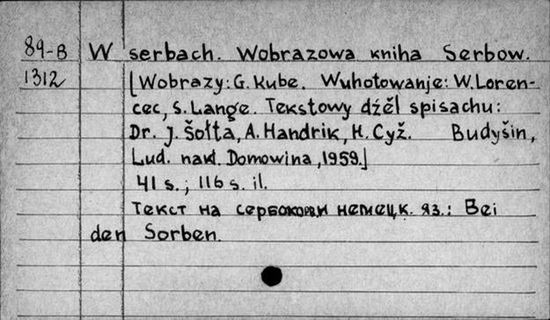 89-В W serbach. Wobrazowa kniha Serbow.
1312 [Wobrazy: G. Kube. Wuhotowanje: W. Loren-
cec, S. Lange. Tekstowy dźěl spisachu:
Dr. J. Šołta, A. Handrik, H. Cyž. Budyšin,
Lud. nakł. Domowina, 1959.]
41 s.; 116 s. il.
Текст на немецк. яз.: Bei
den Sorben.